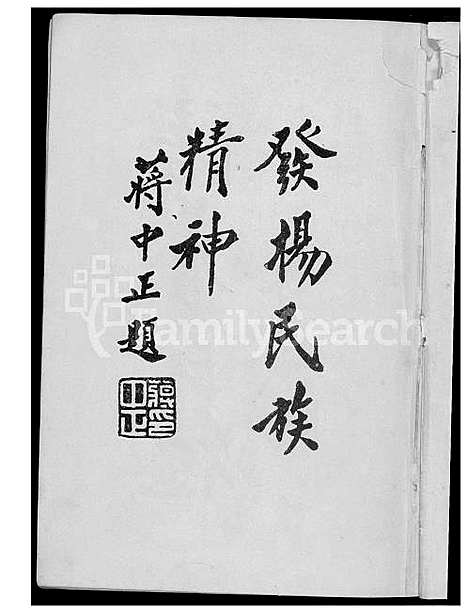 發楊民族
精神
蔣中正題
蔣中正印
FamilySearch